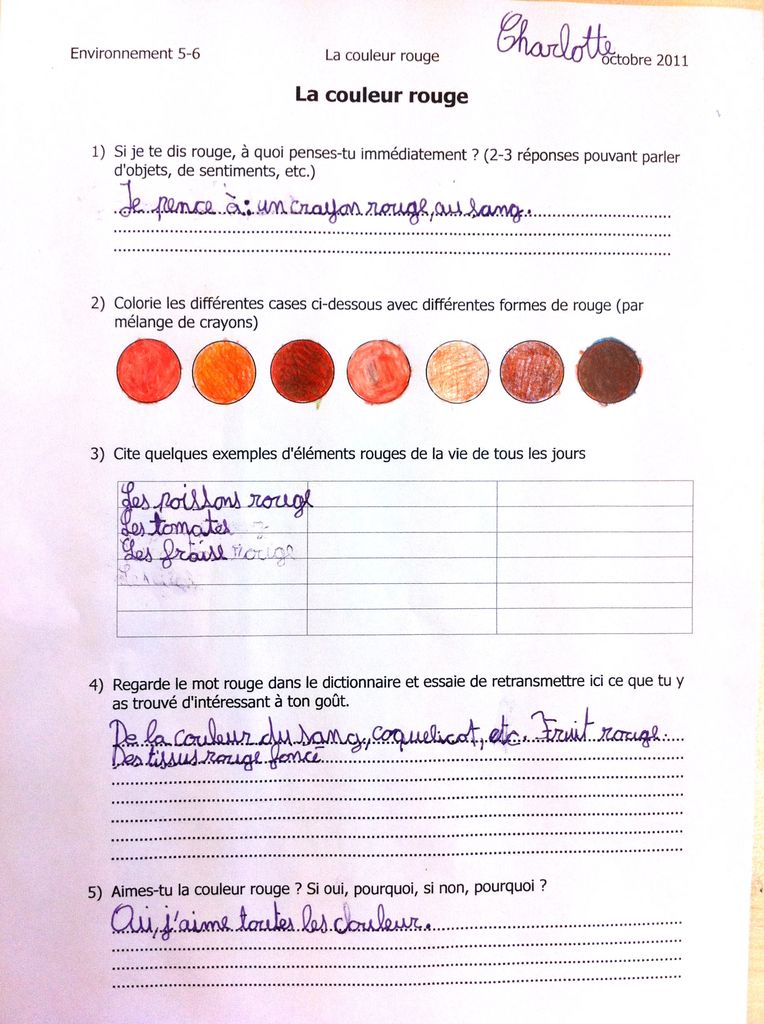 Charlotte
Environnement 5-6 La couleur rouge octobre 2011
La couleur rouge
1) Si je te dis rouge, à quoi penses-tu immédiatement ? (2-3 réponses pouvant parler
d'objets, de sentiments, etc.)
Je pence à: un crayon rouge, au sang.
2) Colorie les différentes cases ci-dessous avec différentes formes de rouge (par
mélange de crayons)
3) Cite quelques exemples d'éléments rouges de la vie de tous les jours
Les poissons rouge
Les tomates
Les fraise rouge
4) Regarde le mot rouge dans le dictionnaire et essaie de retransmettre ici ce que tu y
as trouvé d'intéressant à ton goût.
De la couleur du sang, coquelicot, etc. Fruit rouge.
Des tissus rouge foncé
5) Aimes-tu la couleur rouge ? Si oui, pourquoi, si non, pourquoi ?
Oui, j'aime toutes les couleur.